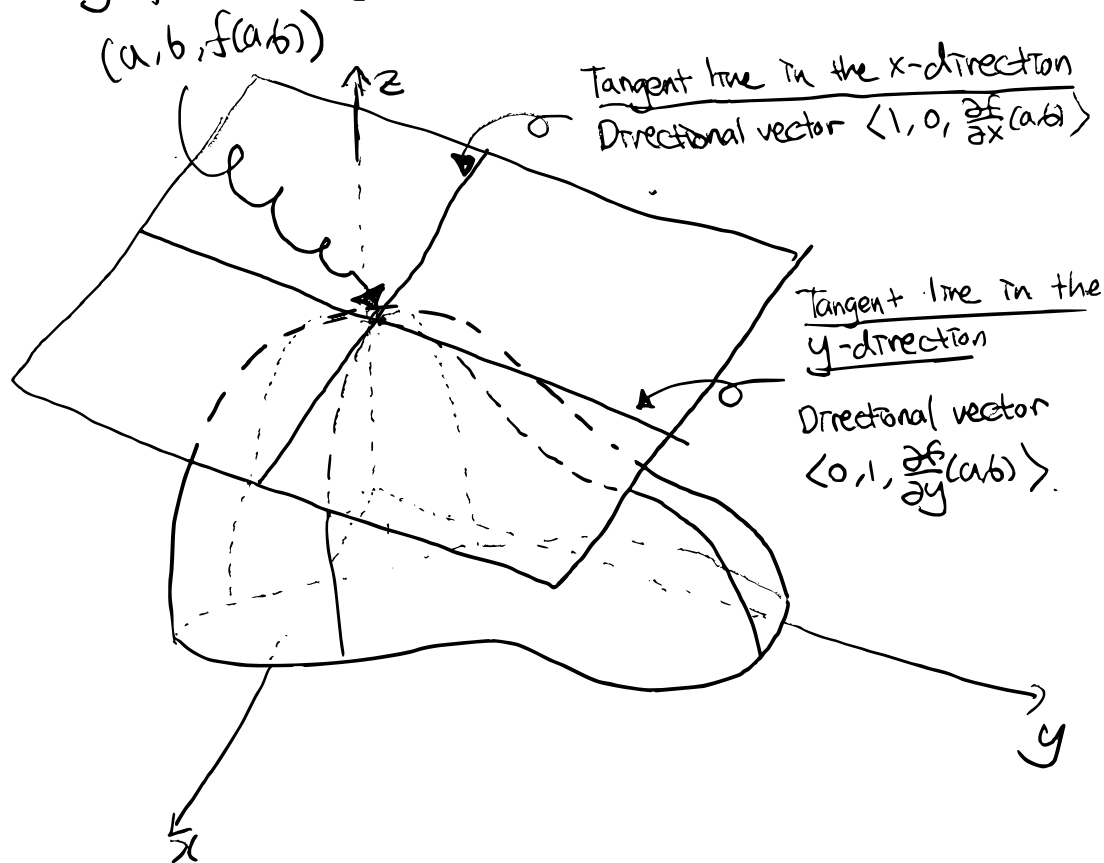 (a, b, f(a,b))
z
Tangent line in the x-direction
Directional vector ⟨1, 0, ∂f/∂x(a,b)⟩
Tangent line in the
y-direction
Directional vector
⟨0, 1, ∂f/∂y(a,b)⟩.
y
x